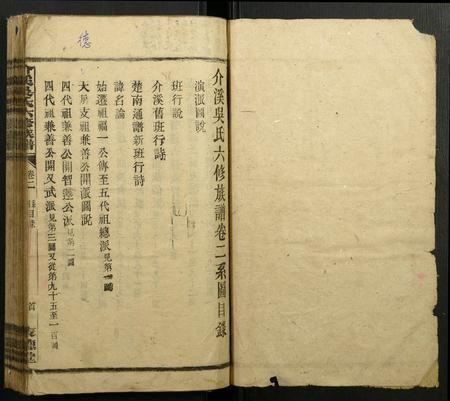 德
介溪吳氏六修族譜卷二系圖目錄
演派圖說
班行說
介溪舊班行詩
楚南通譜新班行詩
諱名論
始遷祖福一公傳至五代祖總派見第一圖
大房支祖兼善公開派圖說
四代祖兼善公開智公派見第二圖
四代祖兼善公開又武派見第三圖又從第九十五至一百圖
卷二
目錄
首